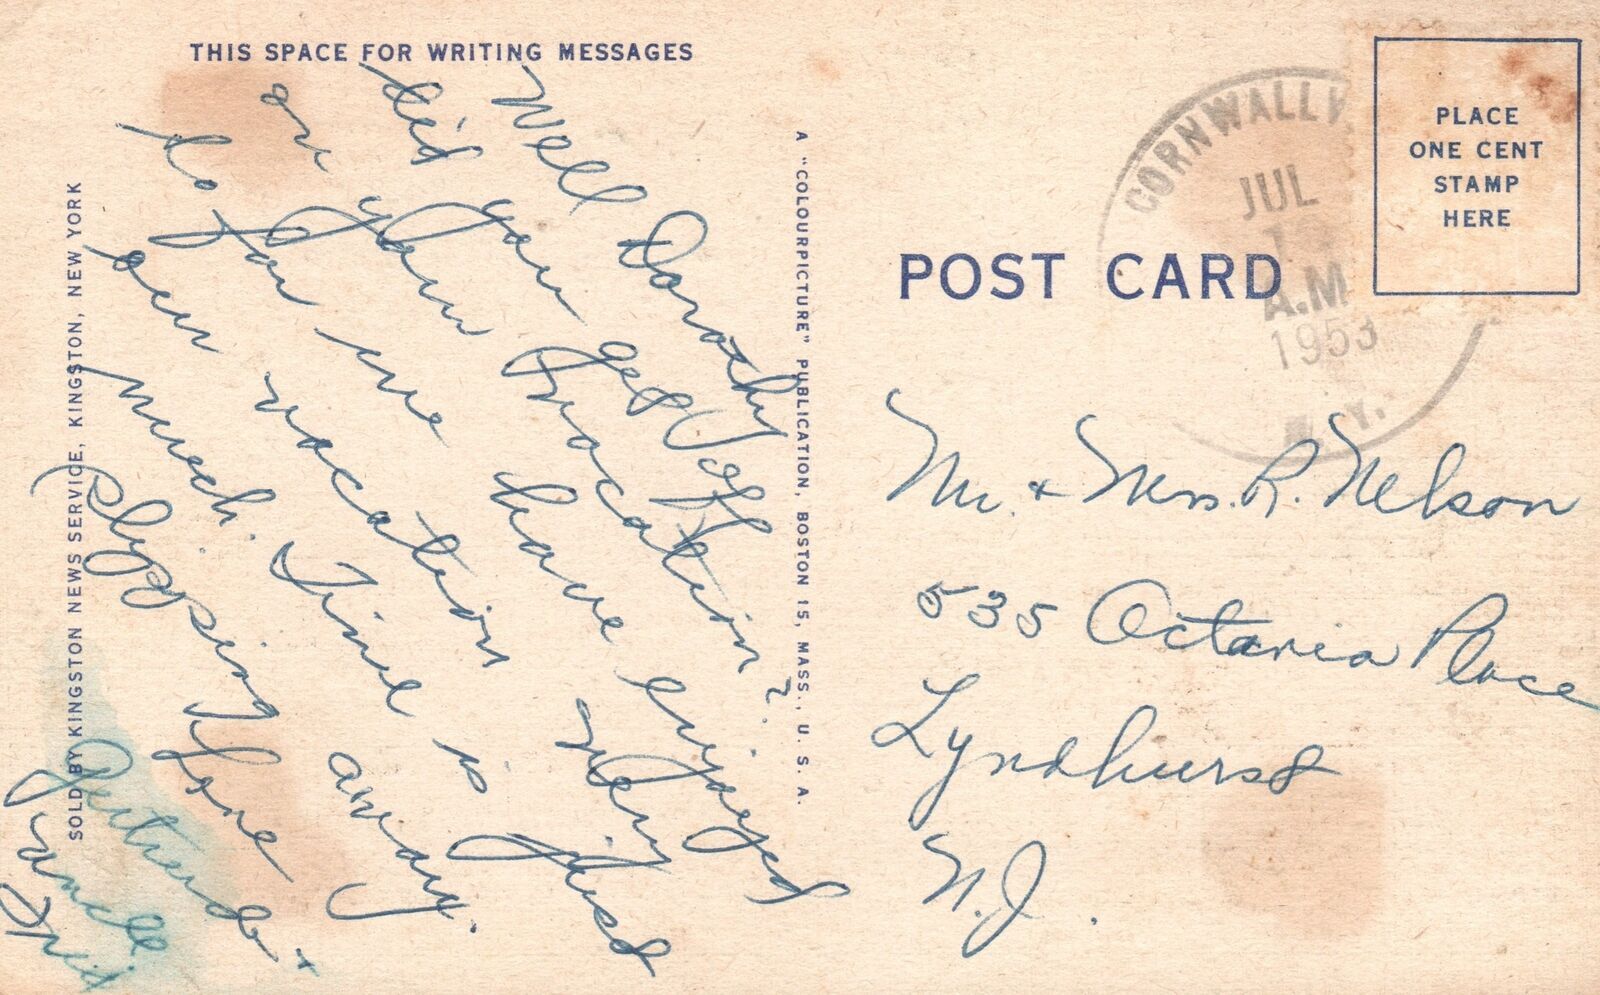 THIS SPACE FOR WRITING MESSAGES
Well Dorothy
did you get off
on your vacation?
So far we have enjoyed
our vacation very
much. Time is just
slipping
away.
Love
Gertrude +
Uncle
Fritz
SOLD BY KINGSTON NEWS SERVICE, KINGSTON, NEW YORK
A "COLOURPICTURE" PUBLICATION, BOSTON 15, MASS., U. S. A.
POST CARD
CORNWALLV
JUL
A.M
1953
N.Y.
PLACE
ONE CENT
STAMP
HERE
Mr. + Mrs. R. Nelson
535 Octavia Place
Lyndhurst
N.J.